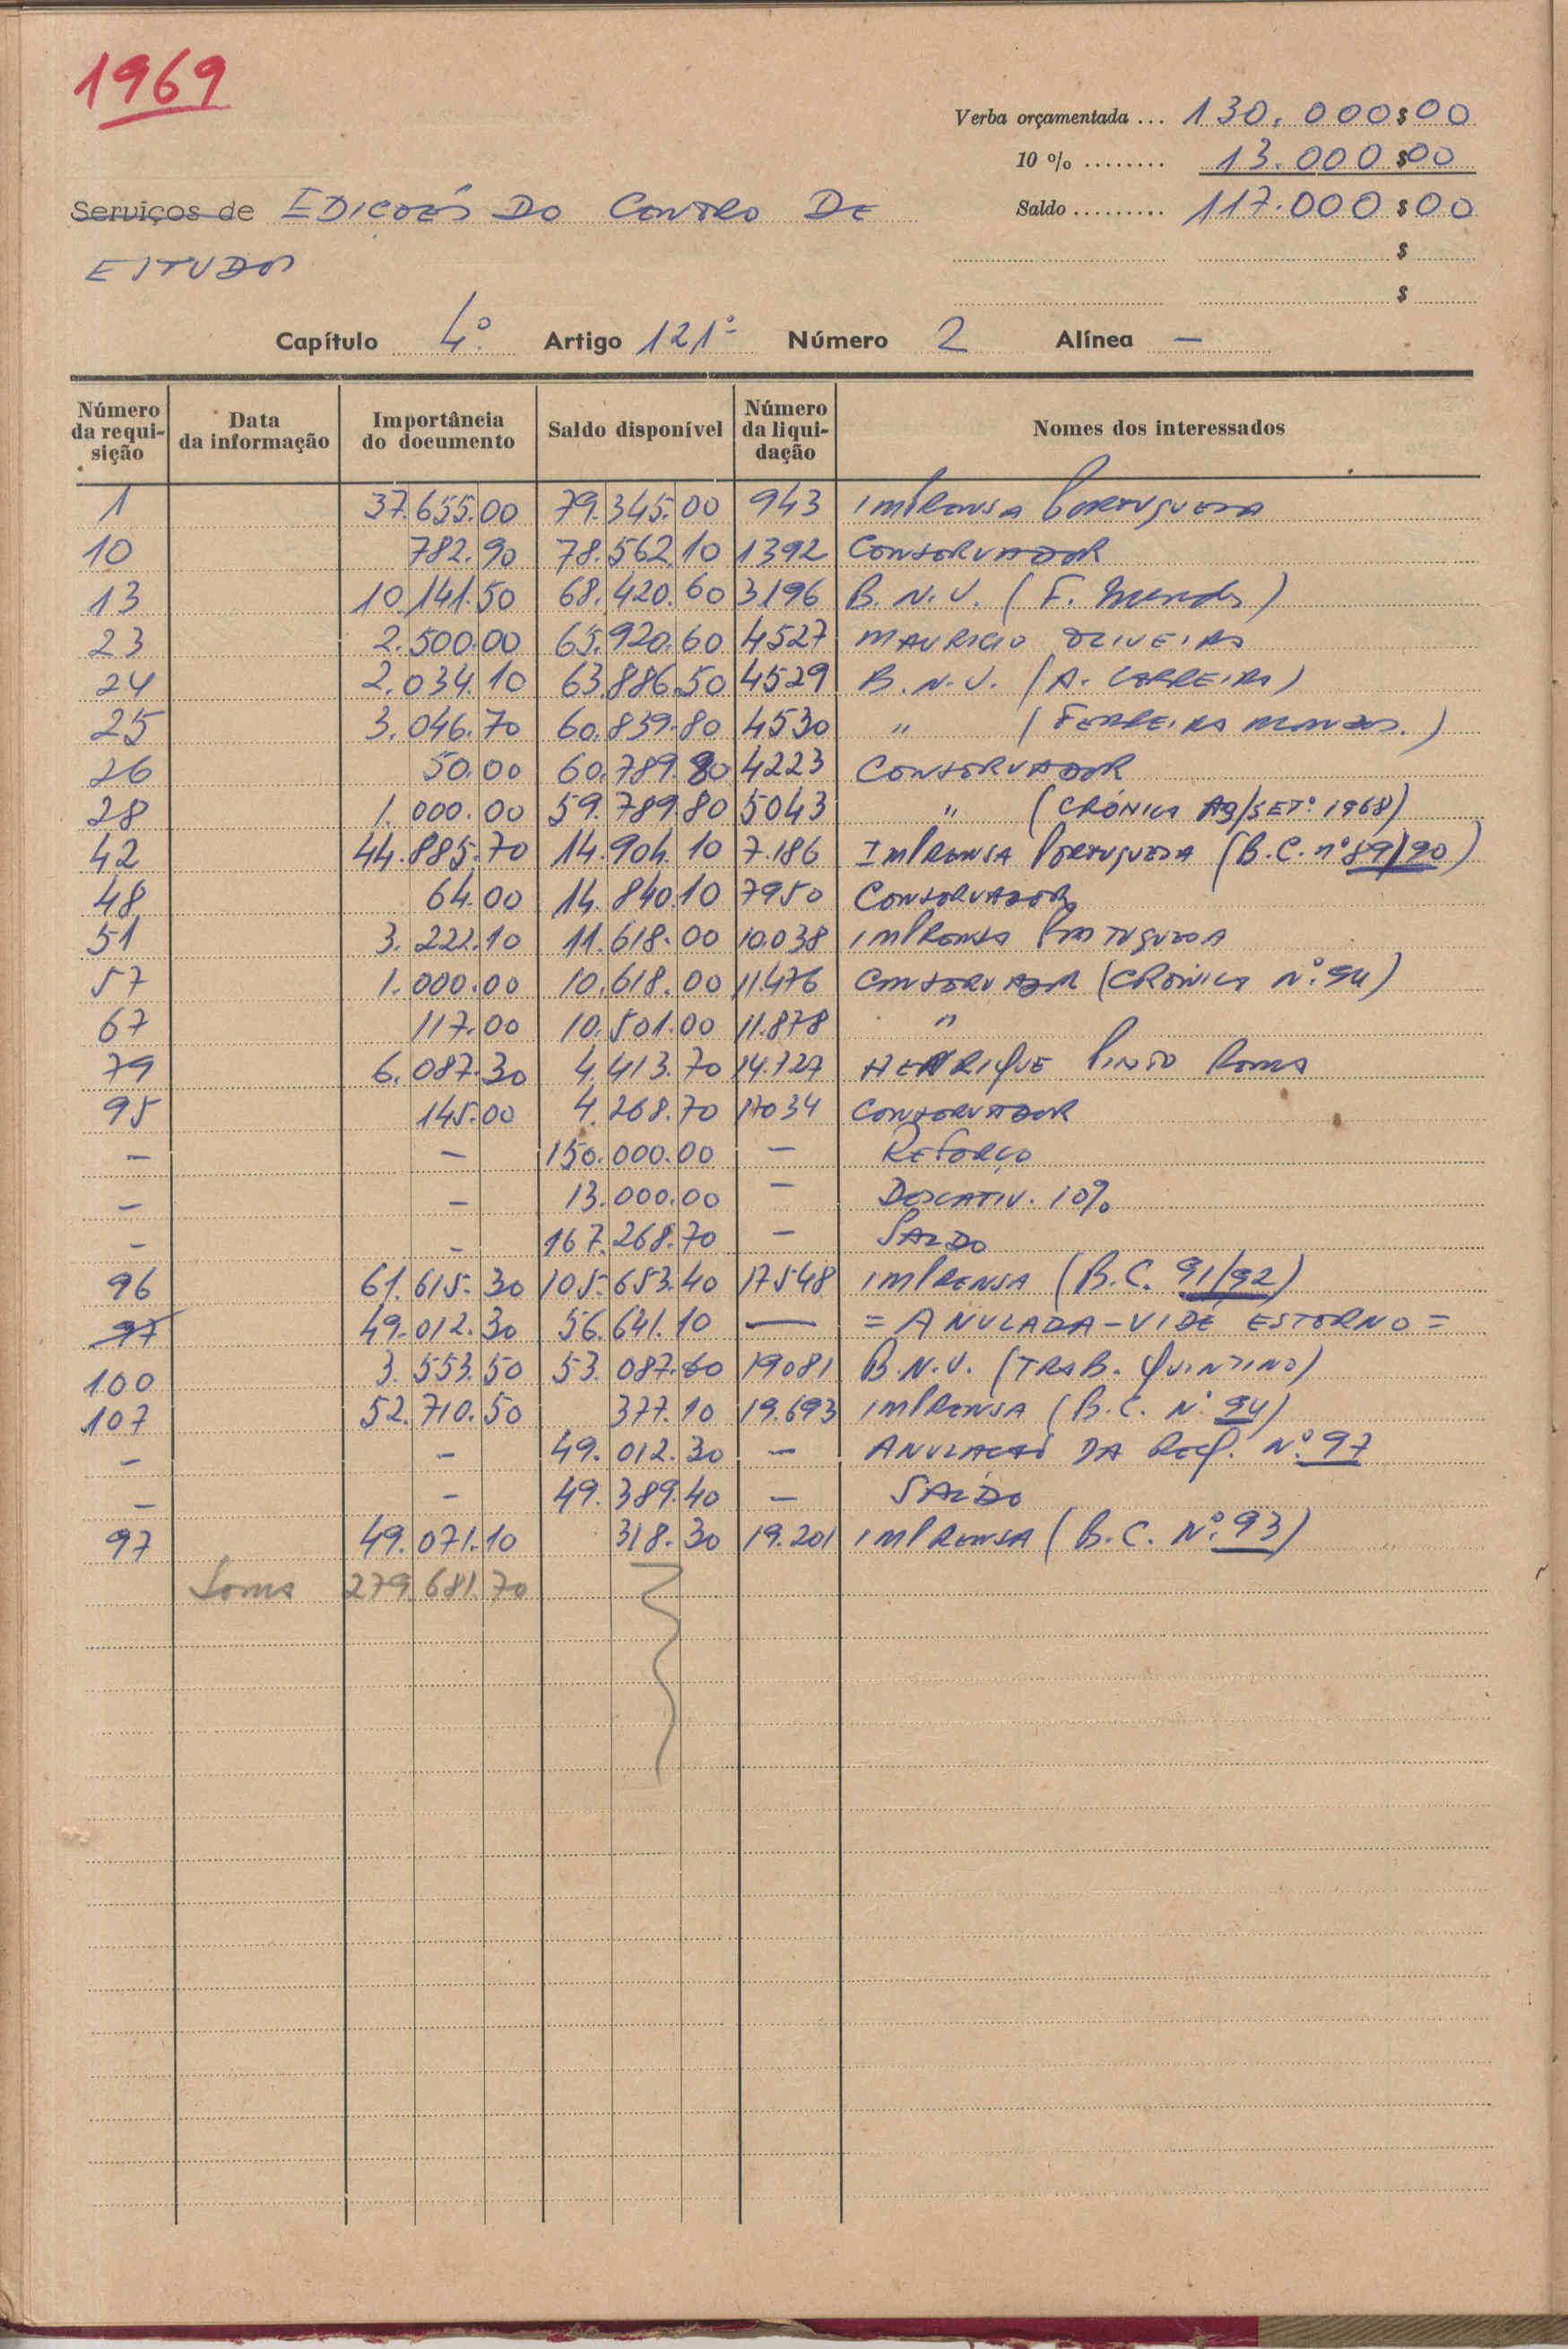 1969
Verba orçamentada ... 130.000$00
10 % ........ 13.000$00
Serviços de EDIÇÕES DO CENTRO DE
Saldo ......... 117.000$00
ESTUDOS
$
$
Capítulo 4.º Artigo 121º Número 2 Alínea —
Número da requisição Data da informação Importância do documento Saldo disponível Número da liquidação Nomes dos interessados
1 37.655.00 79.345.00 943 IMPRENSA PORTUGUESA
10 782.90 78.562.10 1392 CONSERVADOR
13 10.141.50 68.420.60 3196 B. N. U. (F. Mendes)
23 2.500.00 65.920.60 4527 MAURICIO OLIVEIRA
24 2.034.10 63.886.50 4529 B. N. U. (A. CARREIRA)
25 3.046.70 60.839.80 4530 " (FERREIRA MENDES.)
26 50.00 60.789.80 4223 CONSERVADOR
28 1.000.00 59.789.80 5043 " (CRÓNICA AG/SETº 1968)
42 44.885.70 14.904.10 7.186 IMPRENSA PORTUGUESA (B.C. nº 89/90)
48 64.00 14.840.10 7950 CONSERVADOR
51 3.222.10 11.618.00 10.038 IMPRENSA PORTUGUESA
57 1.000.00 10.618.00 11.476 CONSERVADOR (CRÓNICA Nº. 94)
67 117.00 10.501.00 11.878 "
79 6.087.30 4.413.70 14.727 HENRIQUE PINTO
95 145.00 4.268.70 17034 CONSERVADOR
— — 150.000.00 — REFORÇO
— — 13.000.00 — DESCATIV. 10%
— — 167.268.70 — SALDO
96 61.615.30 105.653.40 17548 IMPRENSA (B.C. 91/92)
97 49.012.30 56.641.10 — = ANULADA - VIDÉ ESTORNO =
100 3.553.50 53.087.60 19081 B.N.U. (TRAB. QUINTINO)
107 52.710.50 377.10 19.693 IMPRENSA (B.C. Nº 94)
— — 49.012.30 — ANULAÇÃO DA REQ. Nº. 97
— — 49.389.40 — SALDO
97 49.071.10 318.30 19.201 IMPRENSA (B.C. Nº. 93)
Soma 279.681.70